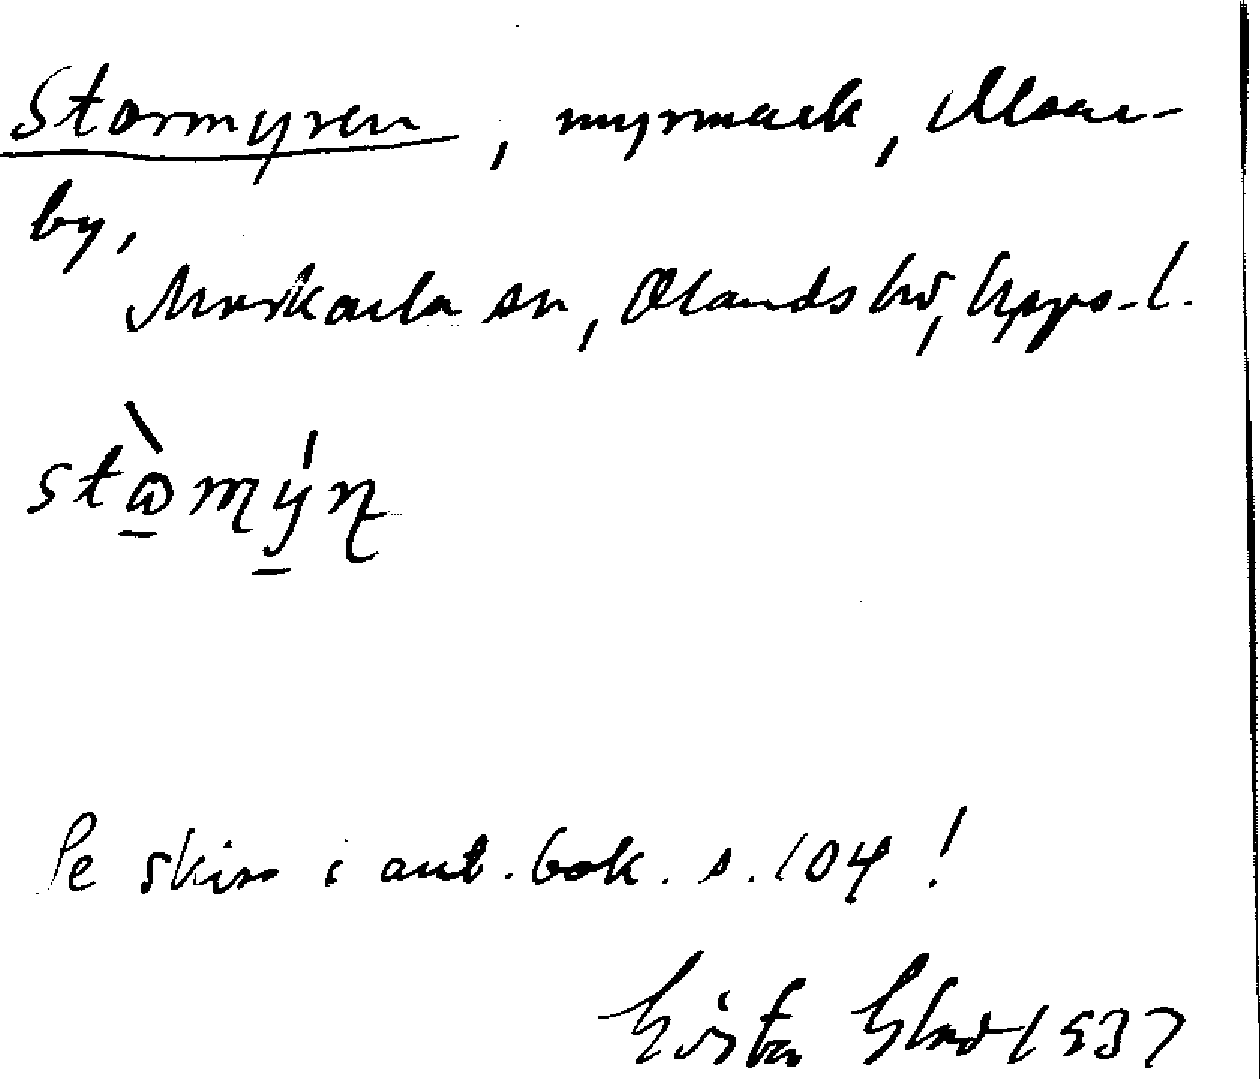 Stormyren, myrmark, Moar-
by,
Morkarla sn, Olands hd, Upps. l.
stàmýn
Se skiss i ant. bok. s. 104!
Gösta 1937